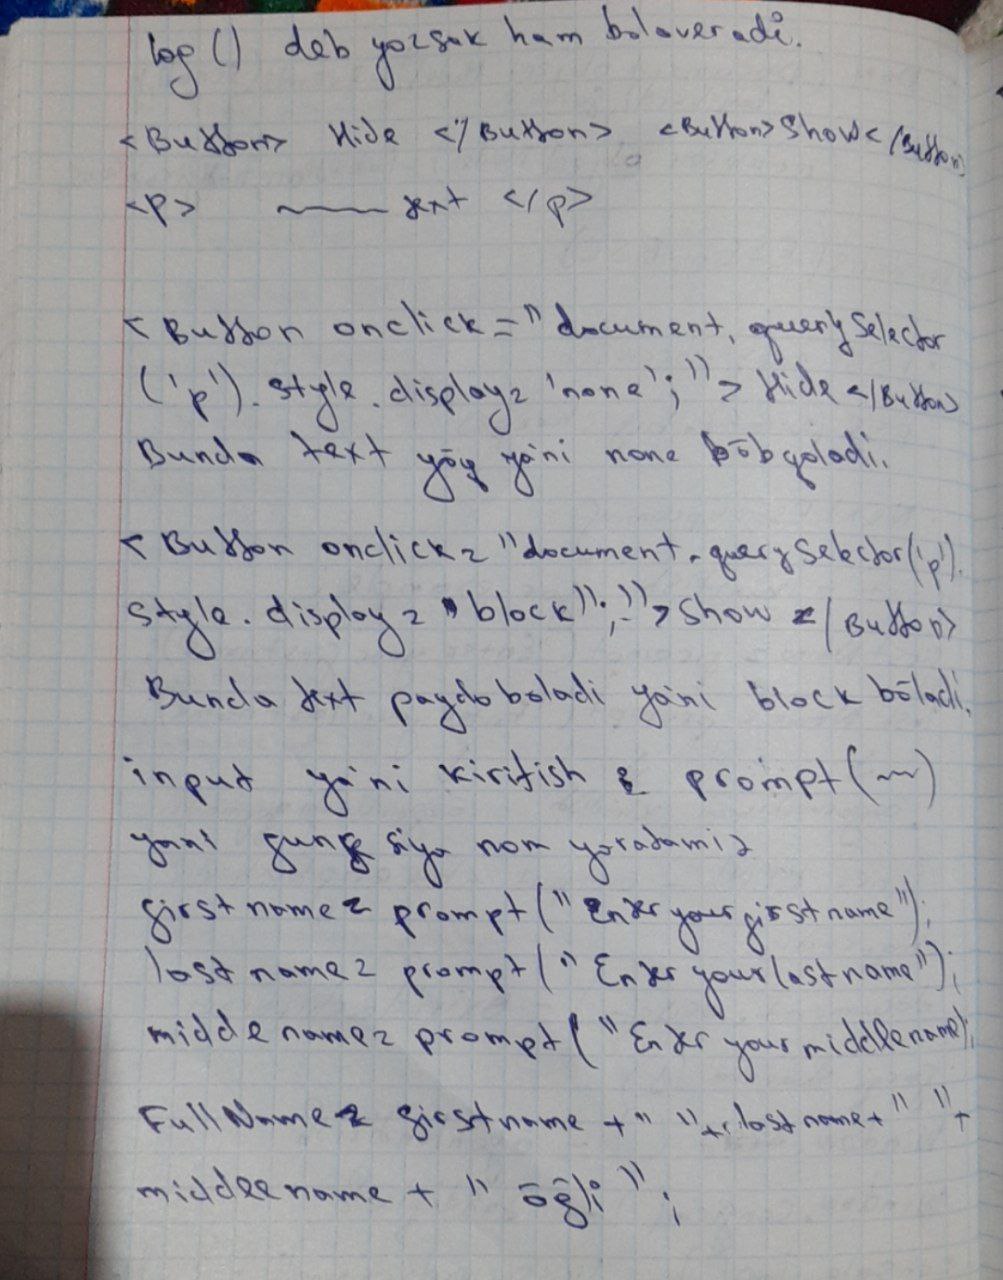 log () deb yozsak ham bolaveradi.
<Button> Hide </Button> <Button> Show </Button>
<p> ~~~ text </p>
<Button onclick = "document. querySelector
('p'). style. display = 'none'; "> Hide </Button>
Bunda text yōq ya'ni none bōb qoladi.
<Button onclick = "document. querySelector('p').
style. display = "block"; "> Show </Button>
Bunda text paydo boladi ya'ni block bōladi.
input ya'ni kiritish & prompt (~~)
yani funksiya nom yaratamiz
firstname = prompt ("Enter your firstname");
lastname = prompt (" Enter your lastname");
middename = prompt ("Enter your middlename);
FullName = firstname + " " + lastname + " " +
middlename + " ōğli ";